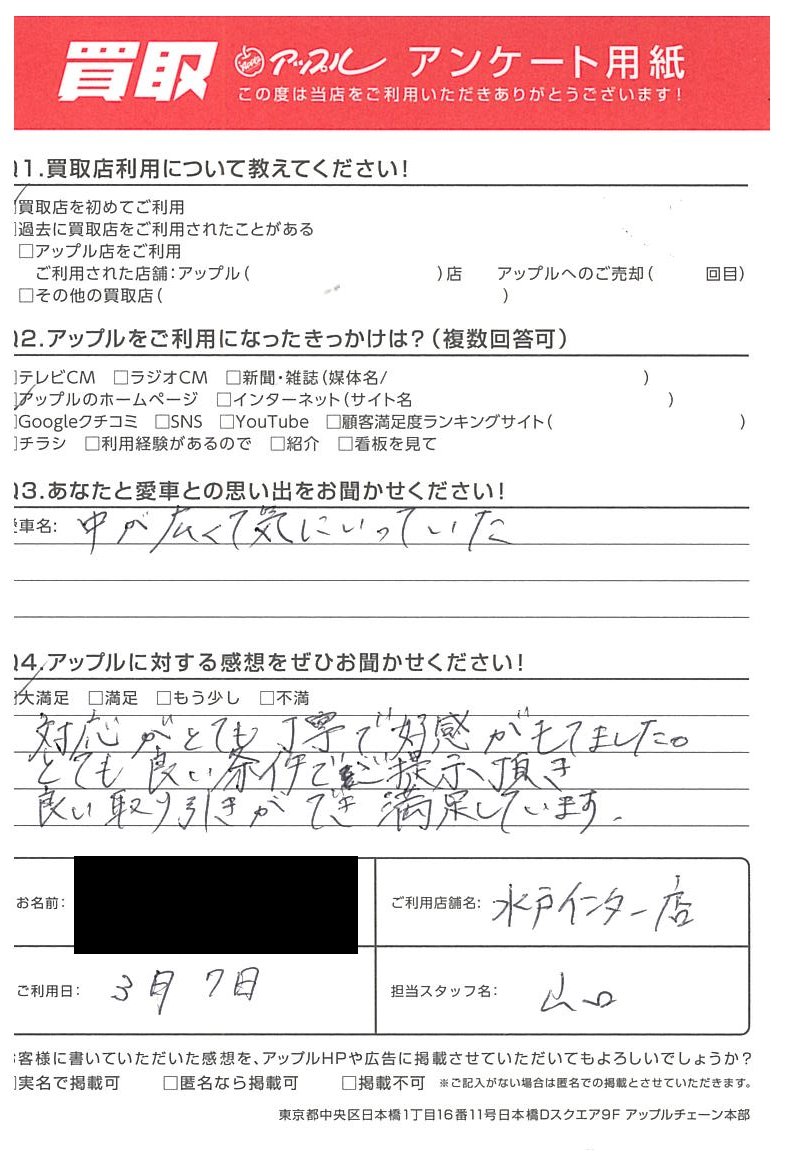 買取 アップル アンケート用紙
この度は当店をご利用いただきありがとうございます!
Q1.買取店利用について教えてください!
買取店を初めてご利用
過去に買取店をご利用されたことがある
□アップル店をご利用
ご利用された店舗:アップル( )店 アップルへのご売却( 回目)
□その他の買取店( )
Q2.アップルをご利用になったきっかけは?(複数回答可)
テレビCM □ラジオCM □新聞・雑誌(媒体名/ )
アップルのホームページ □インターネット(サイト名 )
Googleクチコミ □SNS □YouTube □顧客満足度ランキングサイト( )
チラシ □利用経験があるので □紹介 □看板を見て
Q3.あなたと愛車との思い出をお聞かせください!
愛車名: 中が広くて気にいっていた
Q4.アップルに対する感想をぜひお聞かせください!
大満足 □満足 □もう少し □不満
対応がとても丁寧で好感がもてました。
とても良い条件でご提示頂き
良い取り引きができ満足しています。
お名前: ご利用店舗名: 水戸インター店
ご利用日: 3月7日 担当スタッフ名: 山口
お客様に書いていただいた感想を、アップルHPや広告に掲載させていただいてもよろしいでしょうか?
実名で掲載可 □匿名なら掲載可 □掲載不可 ※ご記入がない場合は匿名での掲載とさせていただきます。
東京都中央区日本橋1丁目16番11号日本橋Dスクエア9F アップルチェーン本部